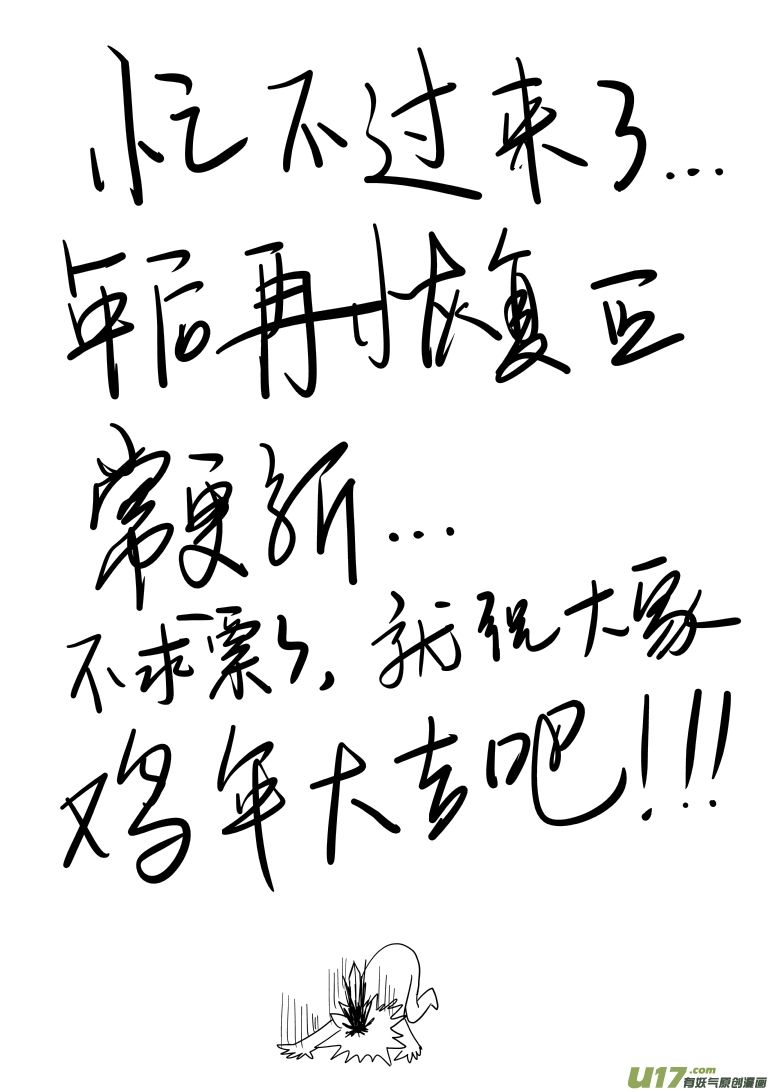 忙不过来了...
年后再恢复正
常更新...
不求票了,就祝大家
鸡年大吉吧!!!
U17.com
有妖气原创漫画